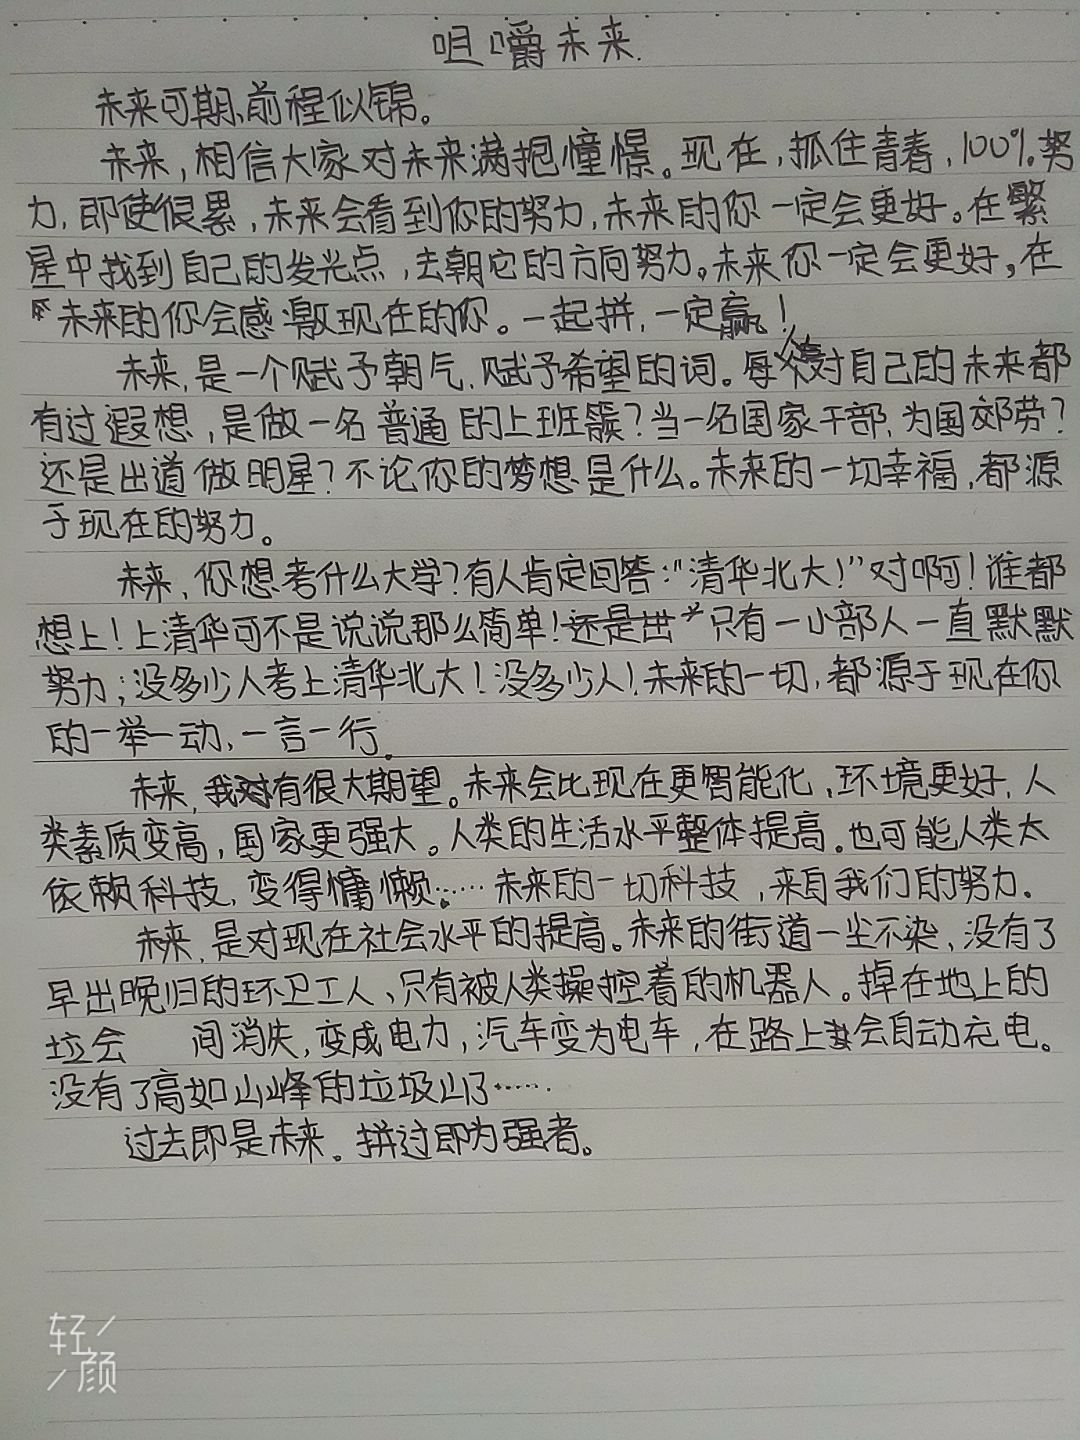 咀嚼未来.
未来可期、前程似锦。
未来,相信大家对未来满抱憧憬。现在,抓住青春,100%努
力,即使很累,未来会看到你的努力,未来的你一定会更好。在繁
星中找到自己的发光点,去朝它的方向努力。未来你一定会更好。在
未来的你会感激现在的你。一起拼,一定赢!
未来,是一个赋予朝气,赋予希望的词。每次对自己的未来都
有过遐想,是做一名普通的上班簇?当一名国家干部,为国效劳?
还是出道做明星?不论你的梦想是什么。未来的一切幸福,都源
于现在的努力。
未来,你想考什么大学?有人肯定回答:"清华北大!"对啊!谁都
想上!上清华可不是说说那么简单!只有一小部人一直默默
努力;没多少人考上清华北大!没多少人!未来的一切,都源于现在你
的一举一动,一言一行。
未来,我对有很大期望。未来会比现在更智能化,环境更好,人
类素质变高,国家更强大。人类的生活水平整体提高。也可能人类太
依赖科技,变得慵懒……未来的一切科技,来自我们的努力。
未来,是对现在社会水平的提高。未来的街道一尘不染,没有了
早出晚归的环卫工人、只有被人类操控着的机器人。掉在地上的
垃会 间消失,变成电力,汽车变为电车,在路上会自动充电。
没有了高如山峰的垃圾山了……
过去即是未来。拼过即为强者。
轻
颜